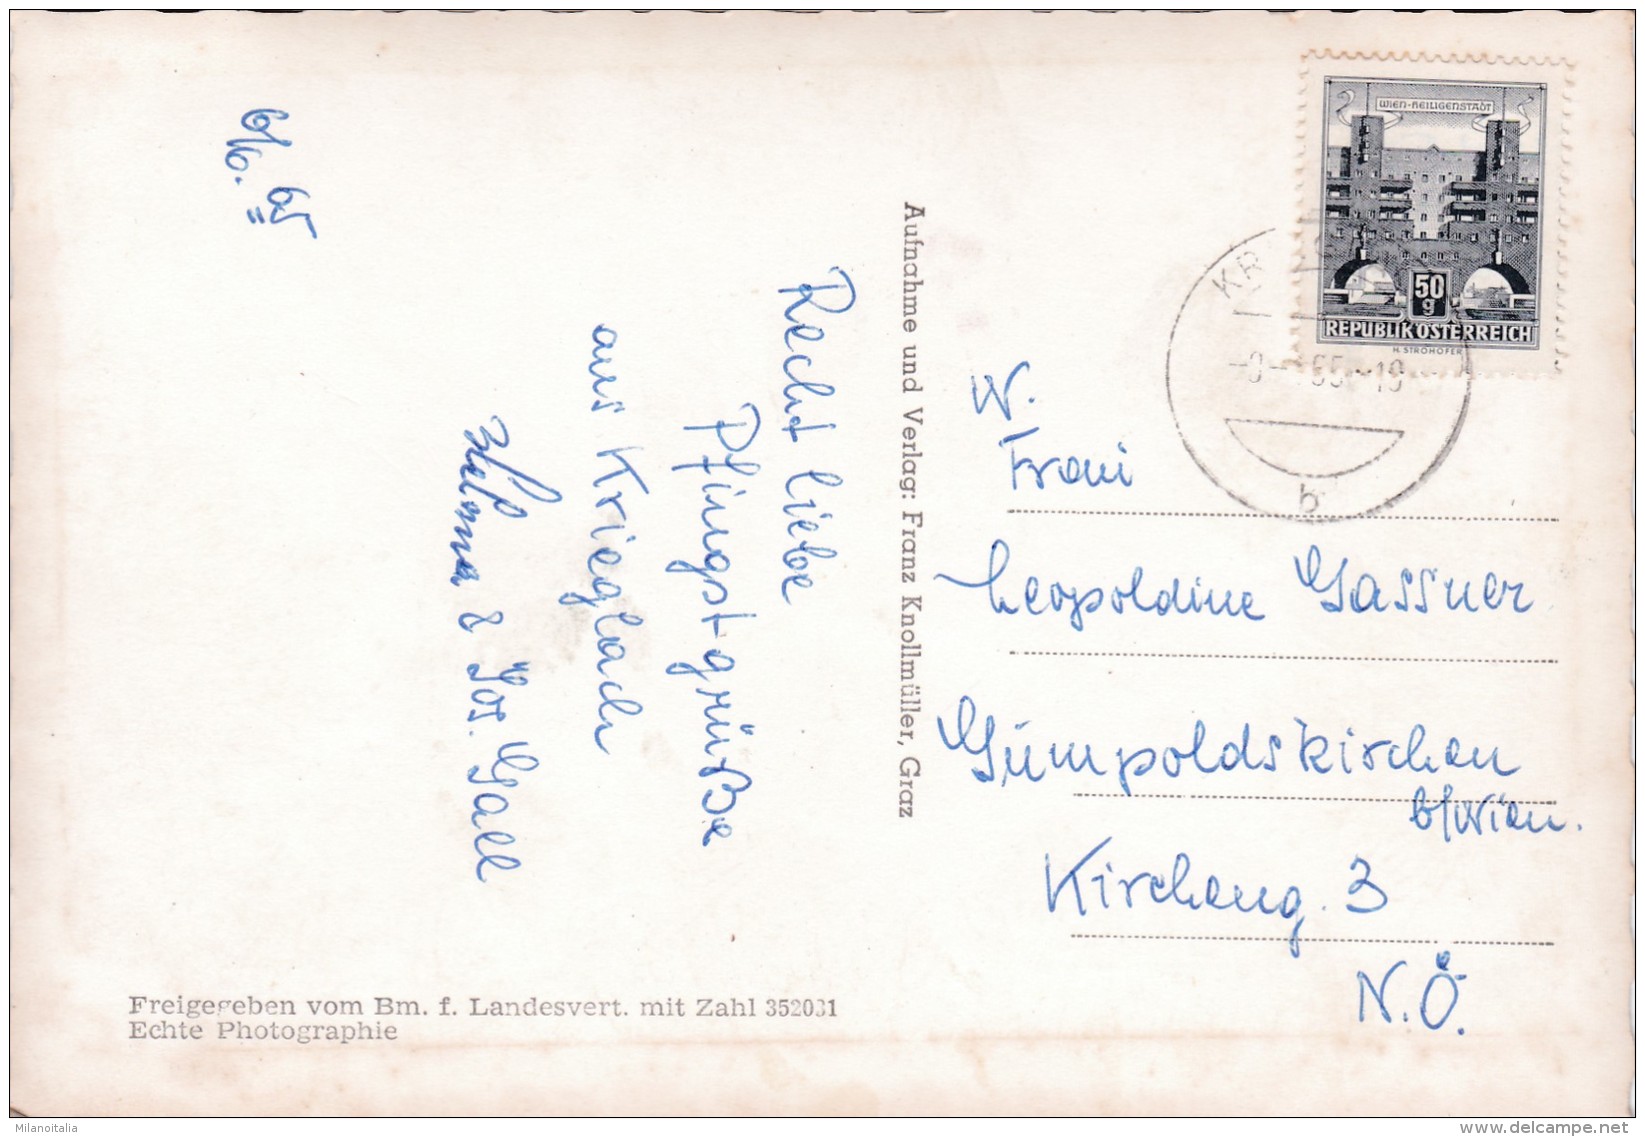 6/6. 65
Recht liebe
Pfingst-grüße
aus Krieglach
& Jos. Gall
Aufnahme und Verlag: Franz Knollmüller, Graz
WIEN-HEILIGENSTADT
50
g
REPUBLIK ÖSTERREICH
H. STROHOFER
KR
65 -19
b
W.
Frau
Leopoldine Gassner
Gumpoldskirchen
b/Wien.
Kircheng. 3
N.Ö.
Freigegeben vom Bm. f. Landesvert. mit Zahl 352031
Echte Photographie
Milanoitalia
www.delcampe.net